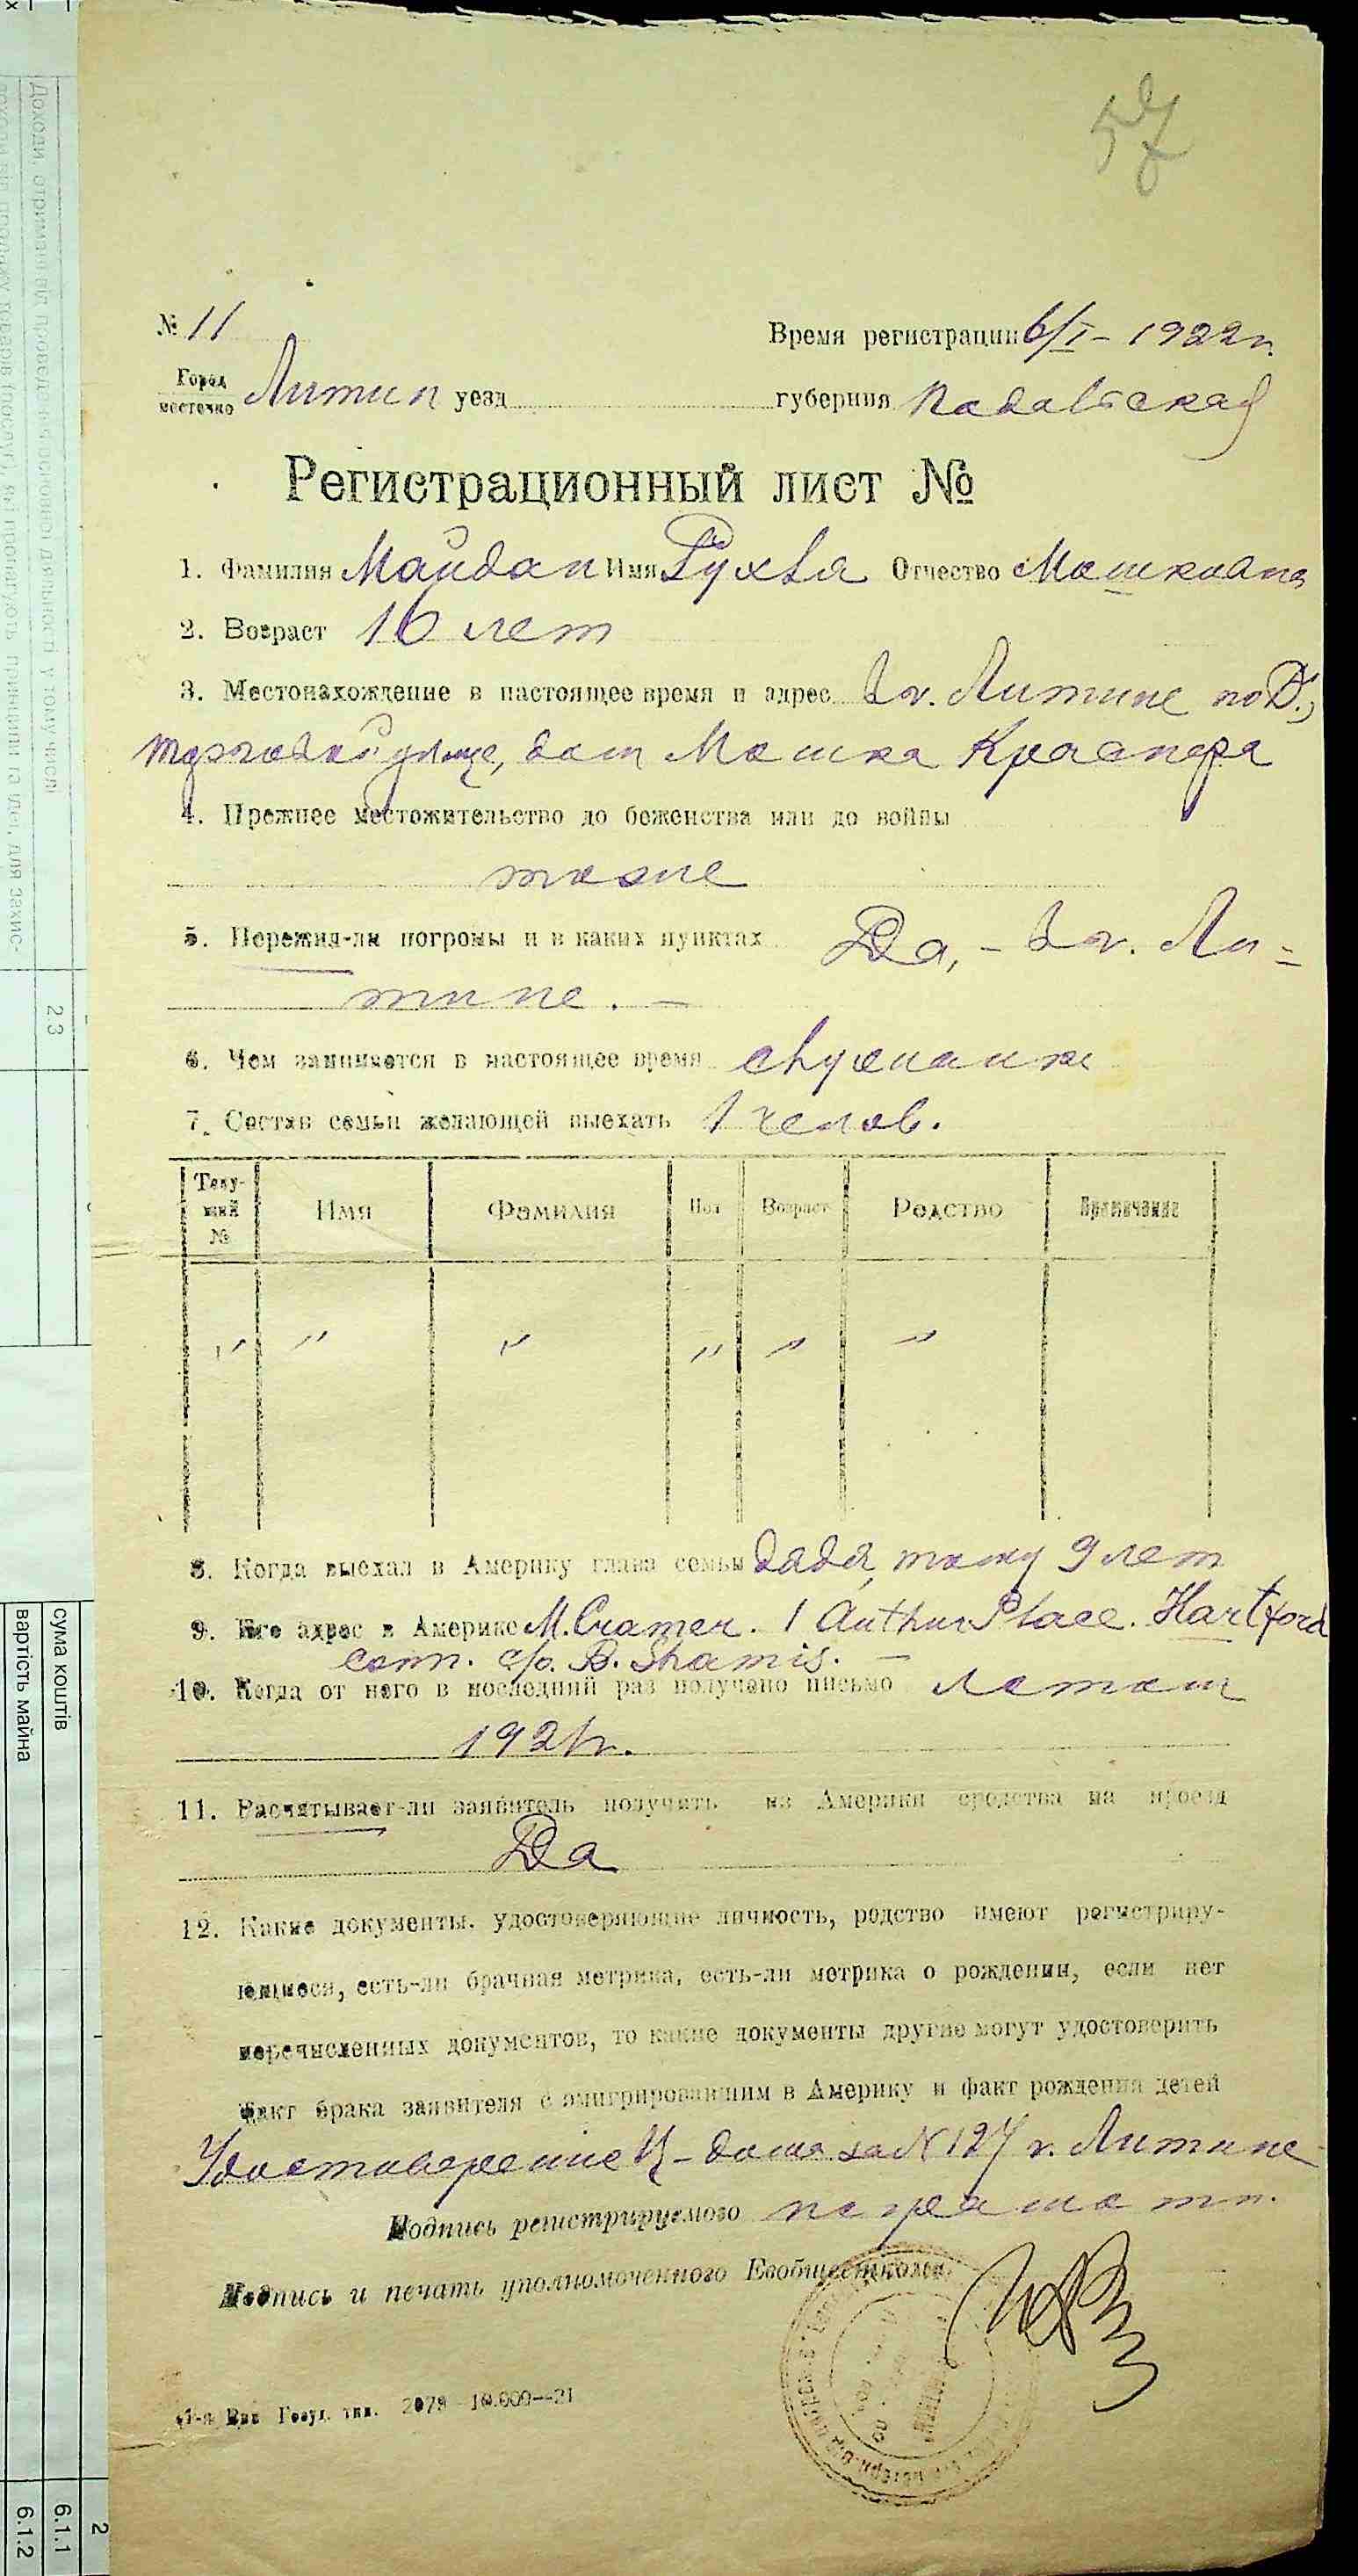 57
№ 11
Время регистрации 6/I – 1922 г.
Город
местечко Литин уезд губерния Подольская
Регистрационный лист №
1. Фамилия Майдан Имя Рухля Отчество Мошковна
2. Возраст 16 лет
3. Местонахождение в настоящее время и адрес В г. Литине по Б.,
торговой улице, дом Мошка Краснера
4. Прежнее местожительство до беженства или до войны
тоже
5. Пережил-ли погромы и в каких пунктах Да, – в г. Ли=
тине. –
6. Чем занимается в настоящее время служанка
7. Состав семьи желающей выехать 1 челов.
Теку-
щий
№ Имя Фамилия Пол Возраст Родство Примечание
" " " " " "
8. Когда выехал в Америку глава семьи дядя, тому 9 лет
9. Его адрес в Америке M. Cramer. 1 Authur Place. Hartford
Conn. c/o. B. Shamis. –
10. Когда от него в последний раз получено письмо летом
1921 г.
11. Расчитывает-ли заявитель получить из Америки средства на проезд
Да
12. Какие документы. удостоверяющие личность, родство имеют регистриру-
ющиеся, есть-ли брачная метрика, есть-ли метрика о рождении, если нет
перечисленных документов, то какие документы другие могут удостоверить
факт брака заявителя с эмигрировавшим в Америку и факт рождения детей
Удостоверение за N 127 г. Литине
Подпись регистрируемого неграмотн.
Подпись и печать уполномоченного Евобщесткома
Госуд. тип. 2079 10.000—21
Доходи, отримані від провед
діяльності у тому числі
2.3
сума коштів
вартість майна
2
6.1.1
6.1.2